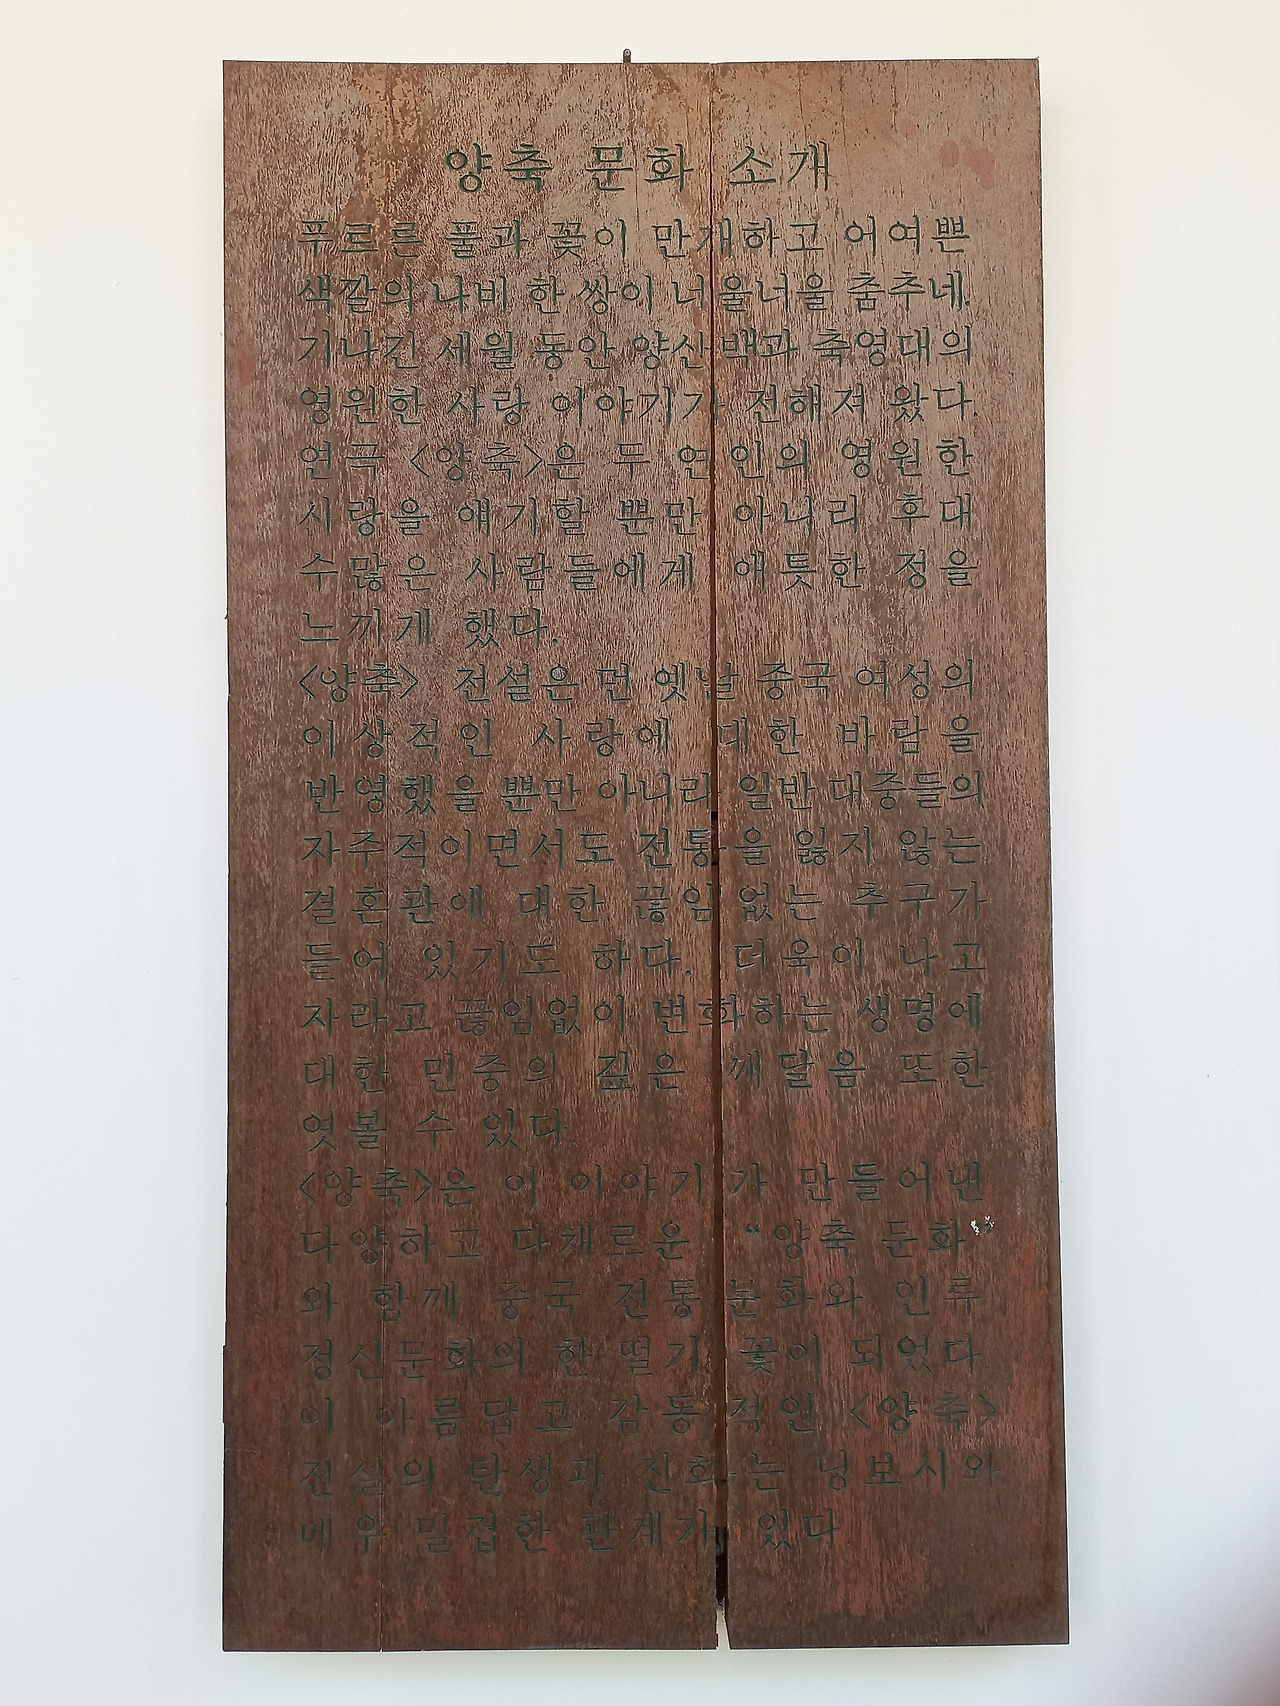 양축 문화 소개
푸르른 풀과 꽃이 만개하고 어여쁜
색깔의 나비 한 쌍이 너울너울 춤추네.
기나긴 세월 동안 양산백과 축영대의
영원한 사랑 이야기가 전해져 왔다.
연극 <양축>은 두 연인의 영원한
시랑을 얘기할 뿐만 아니리 후대
수많은 사람들에게 애틋한 정을
느끼게 했다.
<양축> 전설은 먼 옛날 중국 여성의
이상적인 사랑에 대한 바람을
반영했을 뿐만 아니라 일반 대중들의
자주적이면서도 전통을 잃지 않는
결혼관에 대한 끊임 없는 추구가
듣어 있기도 하다. 더욱이 나고
자라고 끊임없이 변화하는 생명에
대한 민중의 깊은 깨달음 또한
엿볼 수 있다.
<양축>은 이 이야기가 만들어낸
다양하고 다채로운 “양축 둔화”
와 함께 중국 전통 분화와 인류
정신문화의 한 떨기 꽃이 되었다.
이 아름답고 감동적인 <양축>
전실의 탄생과 진화는 닝보시와
메우 밀접한 관계가 있다.